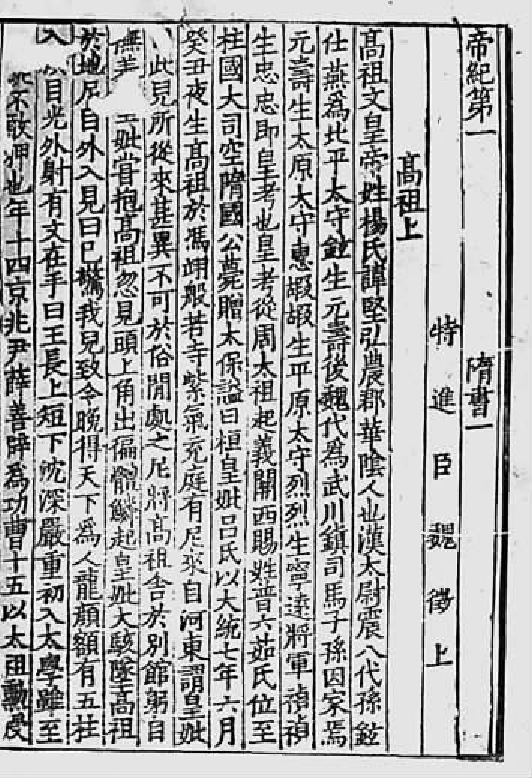 帝紀第一 隋書一
特進臣魏徵上
高祖上
高祖文皇帝姓楊氏諱堅弘農郡華陰人也漢太尉震八代孫鉉
仕燕爲北平太守鉉生元壽後魏代爲武川鎮司馬子孫因家焉
元壽生太原太守惠嘏嘏生平原太守烈烈生寧遠將軍禎禎
生忠忠即皇考也皇考從周太祖起義關西賜姓普六茹氏位至
柱國大司空隋國公薨贈太保謚曰桓皇妣呂氏以大統七年六月
癸丑夜生高祖於馮翊般若寺紫氣充庭有尼來自河東謂皇妣
此兒所從來甚異不可於俗閒處之尼將高祖舍於別館躬自
撫養皇妣甞抱高祖忽見頭上角出徧體鱗起皇妣大駭墜高祖
於地尼自外入見曰已驚我兒致令晚得天下爲人龍顏額有五柱
入 目光外射有文在手曰王長上短下沈深嚴重初入太學雖至
不敢狎也年十四京兆尹薛善辟爲功曹十五以太祖勳授